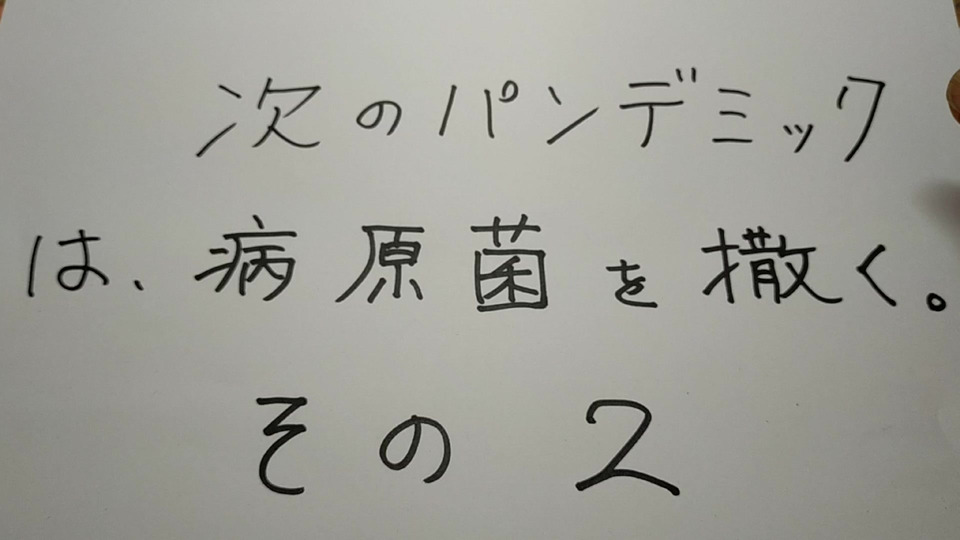 次のパンデミック
は、病原菌を撒く。
その2